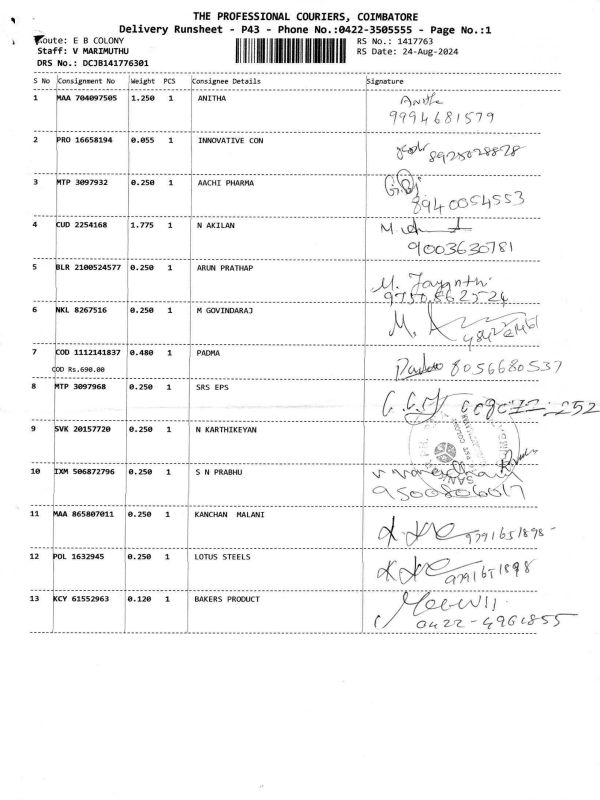 THE PROFESSIONAL COURIERS, COIMBATORE
Delivery Runsheet - P43 - Phone No.:0422-3505555 - Page No.:1
Route: E B COLONY RS No.: 1417763
Staff: V MARIMUTHU RS Date: 24-Aug-2024
DRS No.: DCJB141776301
S No Consignment No Weight PCS Consignee Details Signature
1 MAA 704097505 1.250 1 ANITHA Anitha
9994681579
2 PRO 16658194 0.055 1 INNOVATIVE CON 8925028828
3 MTP 3097932 0.250 1 AACHI PHARMA
8940054553
4 CUD 2254168 1.775 1 N AKILAN
9003630781
5 BLR 2100524577 0.250 1 ARUN PRATHAP
M. Jayanthi
9750862524
6 NKL 8267516 0.250 1 M GOVINDARAJ
7 COD 1112141837 0.480 1 PADMA
COD Rs.690.00 8056680537
8 MTP 3097968 0.250 1 SRS EPS
9 SVK 20157720 0.250 1 N KARTHIKEYAN
10 IXM 506872796 0.250 1 S N PRABHU
9500806017
11 MAA 865807011 0.250 1 KANCHAN MALANI
9791651898
12 POL 1632945 0.250 1 LOTUS STEELS
9791651898
13 KCY 61552963 0.120 1 BAKERS PRODUCT
0422-4961855